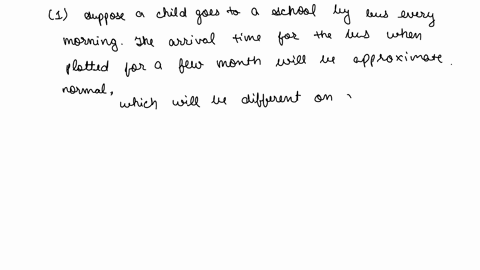 (1) suppose a child goes to a school by bus every
morning. The arrival time for the bus when
plotted for a few month will be approximate.
normal, which will be different on